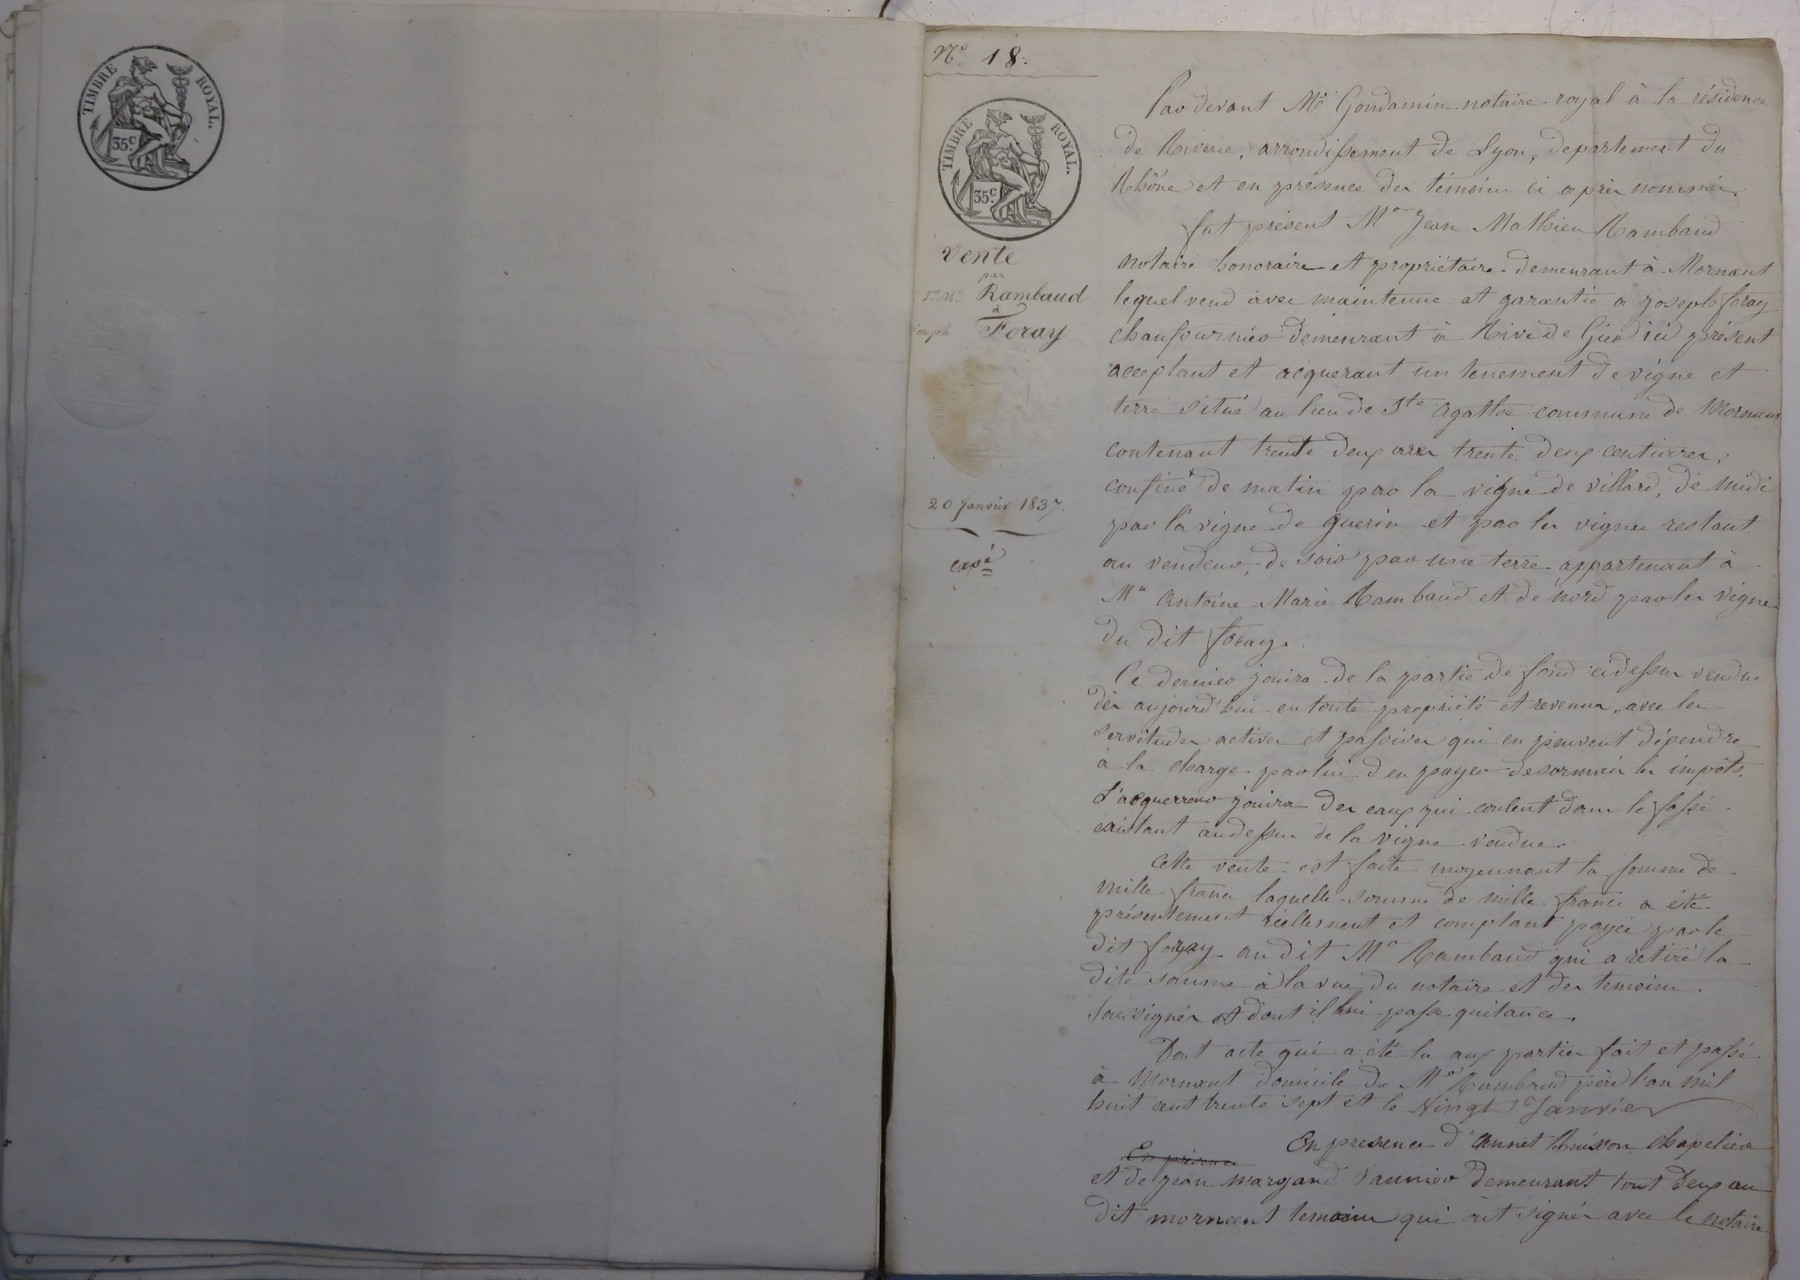 TIMBRE ROYAL.
35.c
N.o 18.
TIMBRE ROYAL.
35.c
Vente
par
Rambaud
à
Joseph Foray
20 Janvier 1837.
expé
Par devant Me Gondamin notaire royal à la résidence
de Riverie, arrondissement de Lyon, departement du
Rhône et en présence des témoins ci après nommés.
fut présent Mre Jean Mathieu Rambaud
notaire honoraire et propriétaire demeurant à Mornant
lequel vend avec maintenue et garantie à joseph foray
chaufournier demeurant à Rive de Gier ici présent
acceptant et acquerant un tenement de vigne et
terre situé au lieu de Ste Agathe commune de Mornant
contenant trente deux ares trente deux centiares,
confiné de matin par la vigne de villard, de midi
par la vigne de guerin et par les vignes restant
au vendeur, de soir par une terre appartenant à
Mre Antoine Marie Rambaud et de nord par les vignes
du dit foray.
Ce dernier jouira de la partie de fond cidessus vendue
dès aujourd'hui en toute propriété et revenus, avec les
servitudes actives et passives qui en peuvent dépendre
à la charge par lui d'en payer desormais les impôts.
L'acquerreur jouira des eaux qui coulent dans le fossé
existant audessus de la vigne vendue.
Cette vente est faite moyennant la somme de
mille francs laquelle somme de mille francs a été
présentement réellement et comptant payée par le
dit foray au dit Mre Rambaud qui a retiré la
dite somme à la vue du notaire et des temoins
soussignés et dont il lui passe quitance.
Dont acte qui a été lu aux parties fait et passé
à Mornant domicile de Mre Rambaud père l'an mil
huit cent trente sept et le Vingt Janvier
En présence En presence d'Annet Buisson chapelier
et de jean margand Vannier demeurant tout deux au
dit mornant temoins qui ont signés avec le notaire